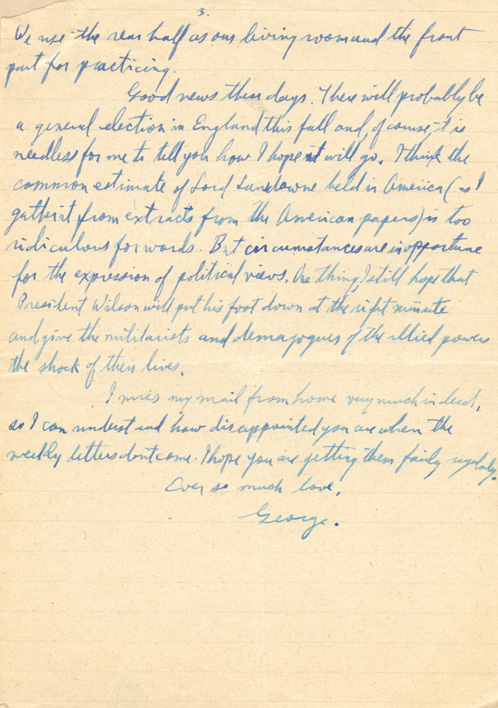 3.
We use the rear half as our living room and the front
part for practicing.
Good news these days. There will probably be
a general election in England this fall and, of course, it is
needless for me to tell you how I hope it will go. I think the
common estimate of Lord Lansdowne held in America (as I
gather it from extracts from the American papers) is too
ridiculous for words. But circumstances are inopportune
for the expression of political views. One thing, I still hope that
President Wilson will put his foot down at the right minute
and give the militarists and demagogues of the allied powers
the shock of their lives.
I miss my mail from home very much indeed,
so I can understand how disappointed you are when the
weekly letters dont come. I hope you are getting them fairly regularly.
Ever so much love,
George.